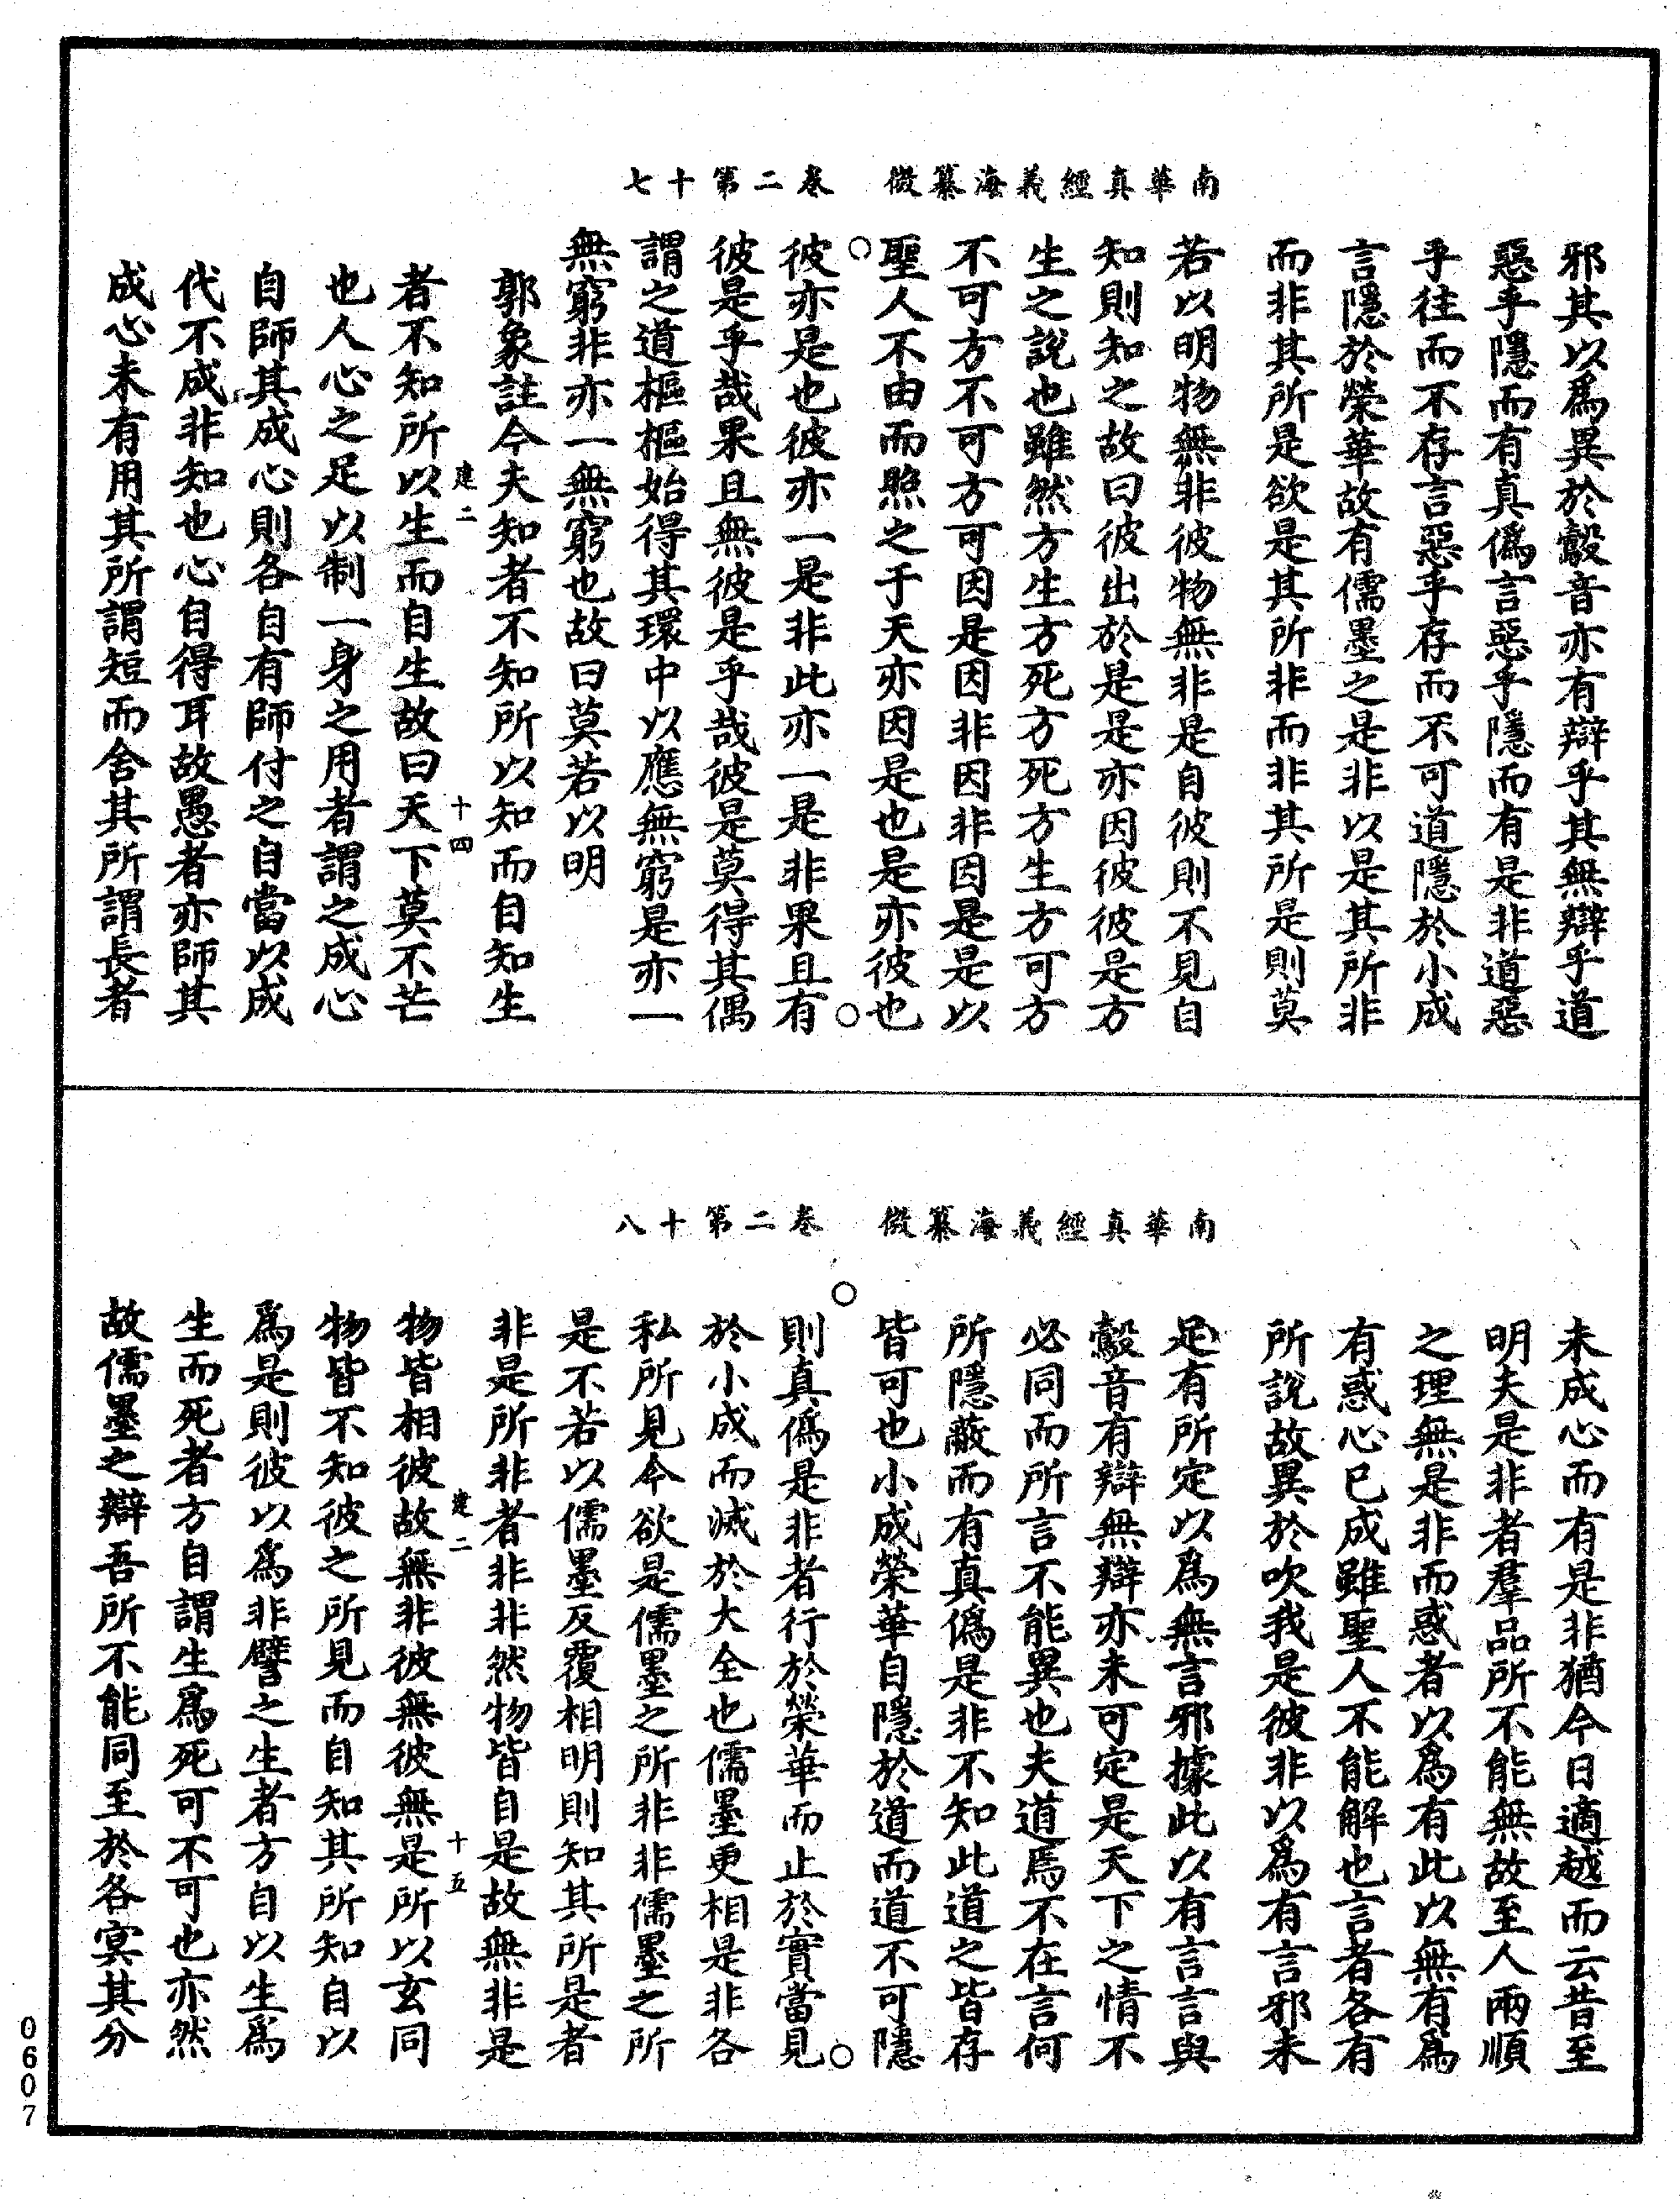 南華真經義海纂微　卷二第十七
邪其以爲異於鷇音亦有辯乎其無辯乎道
惡乎隱而有真僞言惡乎隱而有是非道惡
乎往而不存言惡乎存而不可道隱於小成
言隱於榮華故有儒墨之是非以是其所非
而非其所是欲是其所非而非其所是則莫
若以明物無非彼物無非是自彼則不見自
知則知之故曰彼出於是是亦因彼彼是方
生之說也雖然方生方死方死方生方可方
不可方不可方可因是因非因非因是是以
聖人不由而照之于天亦因是也是亦彼也
彼亦是也彼亦一是非此亦一是非果且有
彼是乎哉果且無彼是乎哉彼是莫得其偶
謂之道樞樞始得其環中以應無窮是亦一
無窮非亦一無窮也故曰莫若以明
郭象註今夫知者不知所以知而自知生
建二　十四
者不知所以生而自生故曰天下莫不芒
也人心之足以制一身之用者謂之成心
自師其成心則各自有師付之自當以成
代不成非知也心自得耳故愚者亦師其
成心未有用其所謂短而舍其所謂長者
南華真經義海纂微　卷二第十八
未成心而有是非猶今日適越而云昔至
明夫是非者羣品所不能無故至人兩順
之理無是非而惑者以爲有此以無有爲
有惑心已成雖聖人不能解也言者各有
所說故異於吹我是彼非以爲有言邪未
足有所定以爲無言邪據此以有言言與
鷇音有辯無辯亦未可定是天下之情不
必同而所言不能異也夫道焉不在言何
所隱蔽而有真僞是非不知此道之皆存
皆可也小成榮華自隱於道而道不可隱
則真僞是非者行於榮華而止於實當見
於小成而滅於大全也儒墨更相是非各
私所見今欲是儒墨之所非非儒墨之所
是不若以儒墨反覆相明則知其所是者
非是所非者非非然物皆自是故無非是
建二　十五
物皆相彼故無非彼無彼無是所以玄同
物皆不知彼之所見而自知其所知自以
爲是則彼以爲非譬之生者方自以生爲
生而死者方自謂生爲死可不可也亦然
故儒墨之辯吾所不能同至於各冥其分
0607